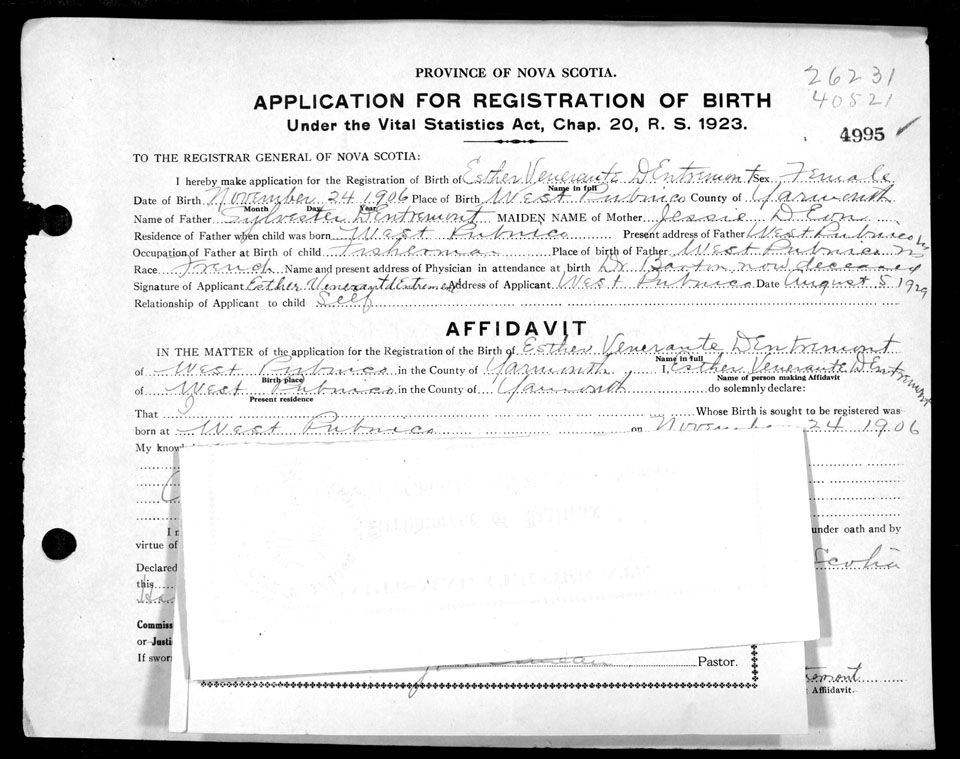 PROVINCE OF NOVA SCOTIA.
26231
40521
APPLICATION FOR REGISTRATION OF BIRTH
Under the Vital Statistics Act, Chap. 20, R. S. 1923.
4995
TO THE REGISTRAR GENERAL OF NOVA SCOTIA:
I hereby make application for the Registration of Birth of Esther Venerante DEntremont Sex Female
Name in full
Date of Birth November 24 1906 Place of Birth West Pubnico County of Yarmouth
Month Day Year
Name of Father Sylvester DEntremont MAIDEN NAME of Mother Jessie DEon
Residence of Father when child was born West Pubnico Present address of Father West Pubnico
Occupation of Father at Birth of child Fisherman Place of birth of Father West Pubnico
Race French Name and present address of Physician in attendance at birth Dr. Barton now deceased
Signature of Applicant Esther Venerant dEntremont Address of Applicant West Pubnico Date August 5 1929
Relationship of Applicant to child Self
AFFIDAVIT
IN THE MATTER of the application for the Registration of the Birth of Esther Venerante DEntremont
Name in full
of West Pubnico in the County of Yarmouth I, Esther Venerante DEntremont
Birth place
Name of person making Affidavit
of West Pubnico in the County of Yarmouth do solemnly declare:
Present residence
That I Whose Birth is sought to be registered was
born at West Pubnico on November 24 1906
My know
I
under oath and by
virtue of
Declared
Scotia
this
Commiss
or Justi
If swor
Pastor.
Affidavit.